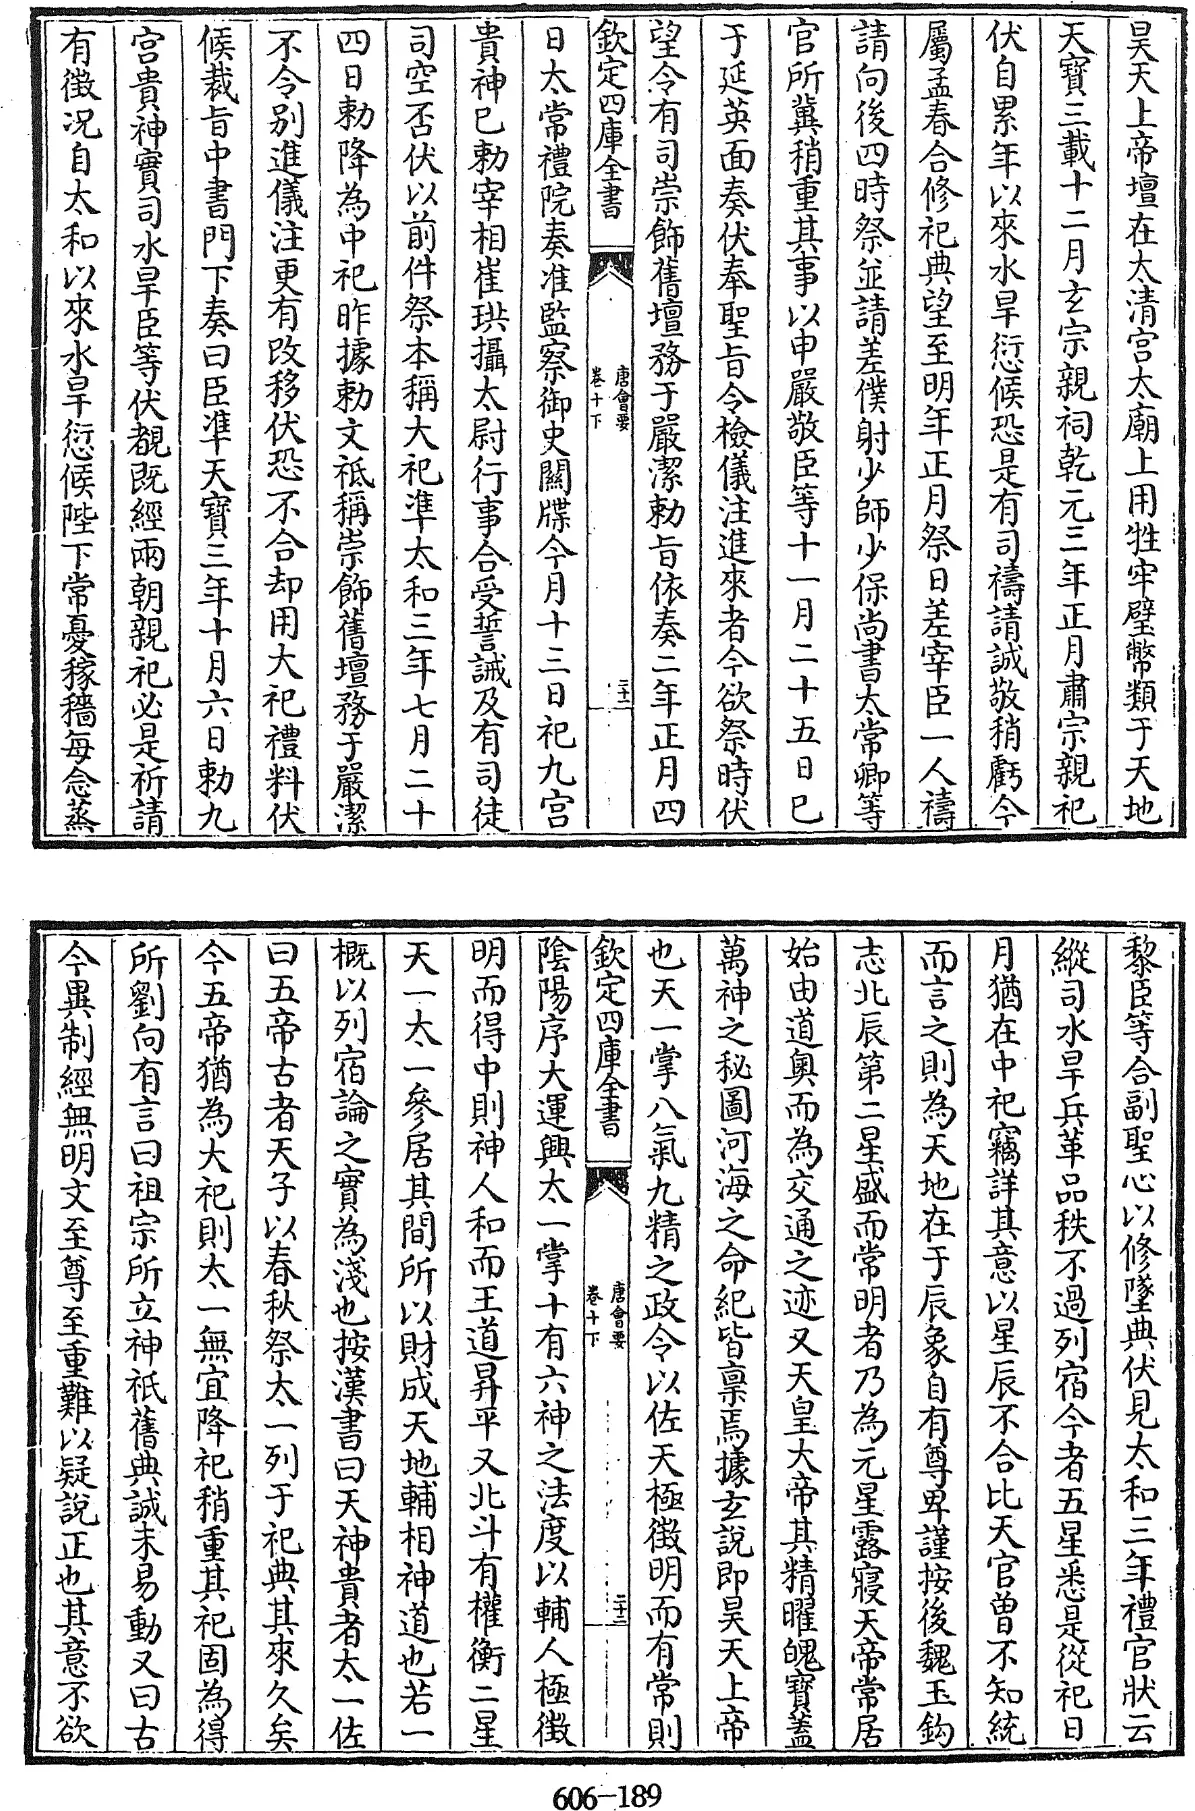 昊天上帝壇在太清宫太廟上用牲牢璧幣類于天地
天寶三載十二月玄宗親祠乾元三年正月肅宗親祀
伏自累年以來水旱愆候恐是有司禱請誠敬稍虧今
屬孟春合修祀典望至明年正月祭日差宰臣一人禱
請向後四時祭並請差僕射少師少保尚書太常卿等
官所兾稍重其事以申嚴敬臣等十一月二十五日已
于延英面奏伏奉聖旨令檢儀注進來者今欲祭時伏
望令有司崇飾舊壇務于嚴潔勅旨依奏二年正月四
欽定四庫全書
唐會要
卷十下
三十二
日太常禮院奏准監察御史關牒今月十三日祀九宫
貴神已勅宰相崔珙攝太尉行事合受誓誡及有司徒
司空否伏以前件祭本稱大祀準太和三年七月二十
四日勅降為中祀昨據勅文祗稱崇飾舊壇務于嚴潔
不令别進儀注更有改移伏恐不合却用大祀禮料伏
候裁旨中書門下奏曰臣準天寶三年十月六日勅九
宫貴神實司水旱臣等伏覩既經兩朝親祀必是祈請
有徵况自太和以來水旱愆候陛下常憂稼穡每念蒸
黎臣等合副聖心以修墜典伏見太和三年禮官狀云
縱司水旱兵革品秩不過列宿今者五星悉是從祀日
月猶在中祀竊詳其意以星辰不合比天官曽不知統
而言之則為天地在于辰象自有尊卑謹按後魏玉鈎
志北辰第二星盛而常明者乃為元星露寢天帝常居
始由道奥而為交通之迹又天皇大帝其精曜魄寶葢
萬神之秘圖河海之命紀皆禀焉據玄説即昊天上帝
也天一掌八氣九精之政令以佐天極徴明而有常則
欽定四庫全書
唐會要
卷十下
三十三
陰陽序大運興太一掌十有六神之法度以輔人極徴
明而得中則神人和而王道昇平又北斗有權衡二星
天一太一參居其間所以財成天地輔相神道也若一
概以列宿論之實為淺也按漢書曰天神貴者太一佐
曰五帝古者天子以春秋祭太一列于祀典其來久矣
今五帝猶為大祀則太一無宜降祀稍重其祀固為得
所劉向有言曰祖宗所立神祇舊典誠未易動又曰古
今異制經無明文至尊至重難以疑説正也其意不欲
606-189